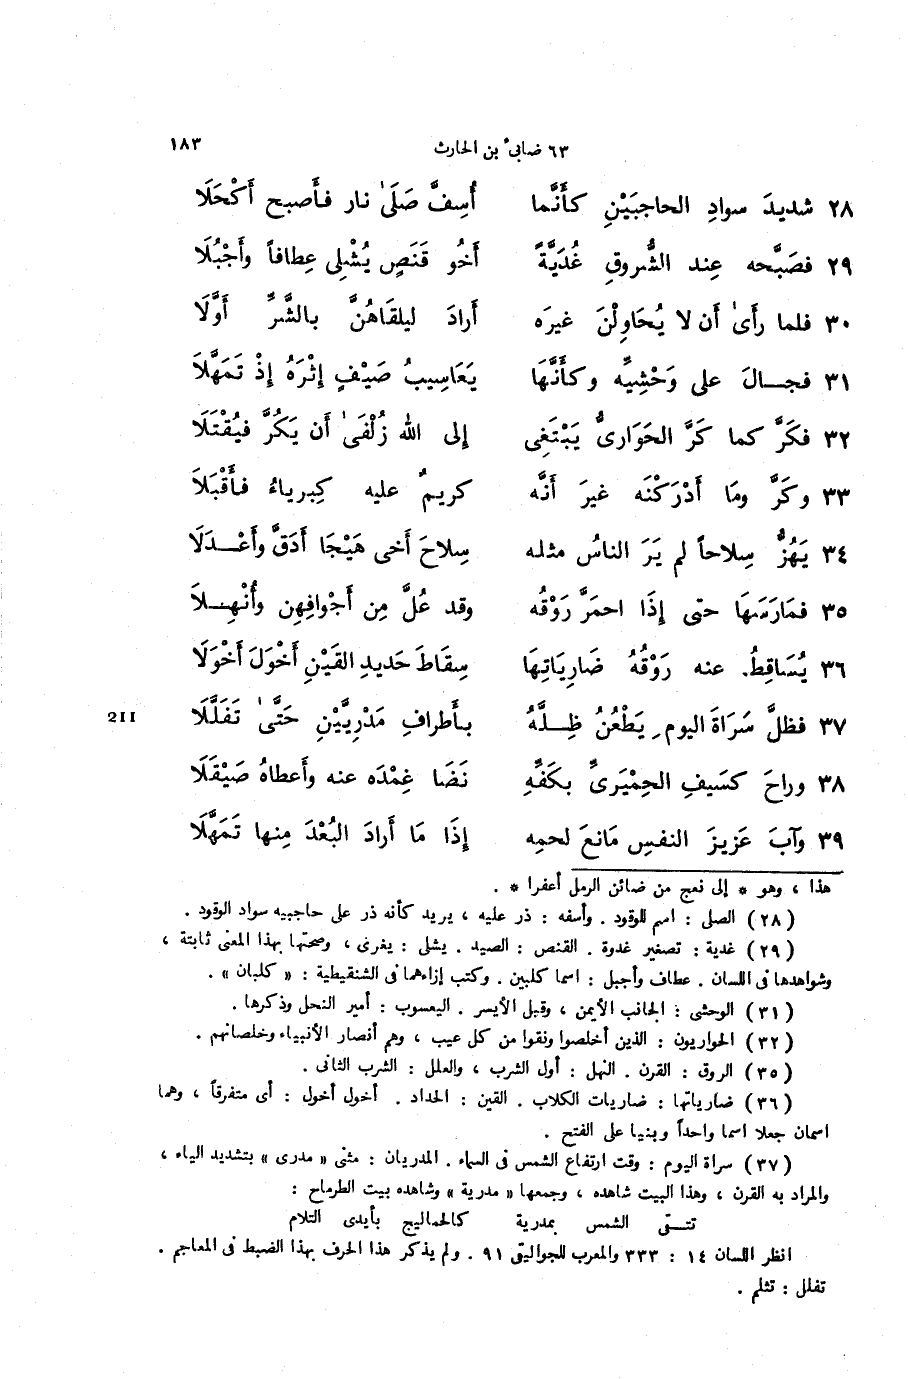 ٦٣ ضابىء بن الحارث ١٨٣
٢٨ شديدَ سوادِ الحاجبَيْنِ كأَنَّما أُسِفَّ صَلَىٰ نار فأَصبح أَكْحَلَا
٢٩ فصَبَّحه عِند الشُّروقِ غُدَيَّةً أَخُو قَنَصٍ يُشْلِى عِطافاً وأَجْبُلَا
٣٠ فلما رأَىٰ أَن لا يُحَاوِلْنَ غيرَه أَرادَ ليلقَاهُنَّ بالشَّرِّ أَوَّلَا
٣١ فجـالَ على وَحْشِيِّه وكأَنَّهَا يَعَاسِيبُ صَيْفٍ إِثْرَهُ إِذْ تَمَهَّلَا
٣٢ فكَرَّ كما كَرَّ الحَوَارىُّ يَبْتَغِى إلى الله زُلْفَىٰ أَن يَكُرَّ فيُقْتَلَا
٣٣ وكَرَّ ومَا أَدْرَكْنَه غيرَ أَنَّه كريمٌ عليه كِبرياءُ فأَقْبَلَا
٣٤ يَهُزُّ سِلاحاً لم يَرَ الناسُ مثله سِلاحَ أَخى هَيْجَا أَدَقَّ وأَعْـدَلَا
٣٥ فمَارَسَهَا حتى إِذَا احمَرَّ رَوْقُه وقد عُلَّ مِن أَجْوافِهِن وأُنْهِـلَا
٣٦ يُسَاقِطُ عنه رَوْقُهُ ضَارِيَاتِهَا سِقَاطَ حَديدِ القَيْنِ أَخْوَلَ أَخْوَلَا
٣٧ فظلَّ سَرَاةَ اليومِ يَطْعُنُ ظِـلَّهُ بأَطرافِ مَدْرِيَّيْنِ حَتَّىٰ تَفَلَّلَا 211
٣٨ وراحَ كسَيفِ الحِمْيَرِىِّ بكَفِّهِ نَضَا غِمْدَه عنه وأَعطاهُ صَيْقَلَا
٣٩ وآبَ عَزيزَ النفسِ مَانعَ لحمِه إِذَا مَا أَرادَ البُعْدَ مِنها تَمَهَّلَا
هذا ، وهو * إلى نعج من ضائن الرمل أعفرا * .
( ٢٨ ) الصلى : اسم للوقود . وأسفه : ذر عليه ، يريد كأنه ذر على حاجبيه سواد الوقود .
( ٢٩ ) غدية : تصغير غدوة . القنص : الصيد . يشلى : يغرى ، وصحتها بهذا المعنى ثابتة ،
وشواهدها فى اللسان . عطاف وأجبل : اسما كلبين . وكتب إزاءهما فى الشنقيطية : « كلبان » .
( ٣١ ) الوحشى : الجانب الأيمن ، وقيل الأيسر . اليعسوب : أمير النحل وذكرها .
( ٣٢ ) الحواريون : الذين أخلصوا ونقوا من كل عيب ، وهم أنصار الأنبياء وخلصانهم .
( ٣٥ ) الروق : القرن . النهل : أول الشرب ، والعلل : الشرب الثانى .
( ٣٦ ) ضارياتها : ضاريات الكلاب . القين : الحداد . أخول أخول : أى متفرقاً ، وهما
اسمان جعلا اسما واحداً وبنيا على الفتح .
( ٣٧ ) سراة اليوم : وقت ارتفاع الشمس فى السماء . المدريان : مثنى « مدرى » بتشديد الياء ،
والمراد به القرن ، وهذا البيت شاهده ، وجمعها « مدرية » وشاهده بيت الطرماح :
تتـقى الشمس بمدرية كالحماليج بأيدى التلام
انظر اللسان ١٤ : ٣٣٣ والمعرب للجواليقى ٩١ . ولم يذكر هذا الحرف بهذا الضبط فى المعاجم .
تفلل : تثلم .